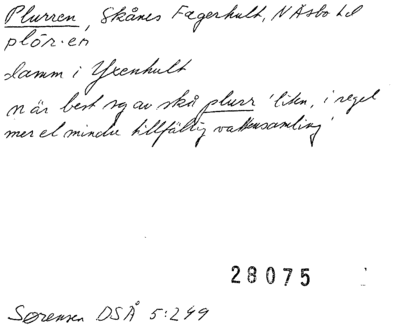 Plurren, Skånes Fagerhult, N Åsbo hd
plör·en
damm i Yxenhult
n är best sg av skå plurr 'liten, i regel
mer el mindre tillfällig vattensamling'
28075
Sørensen DSÅ 5:249